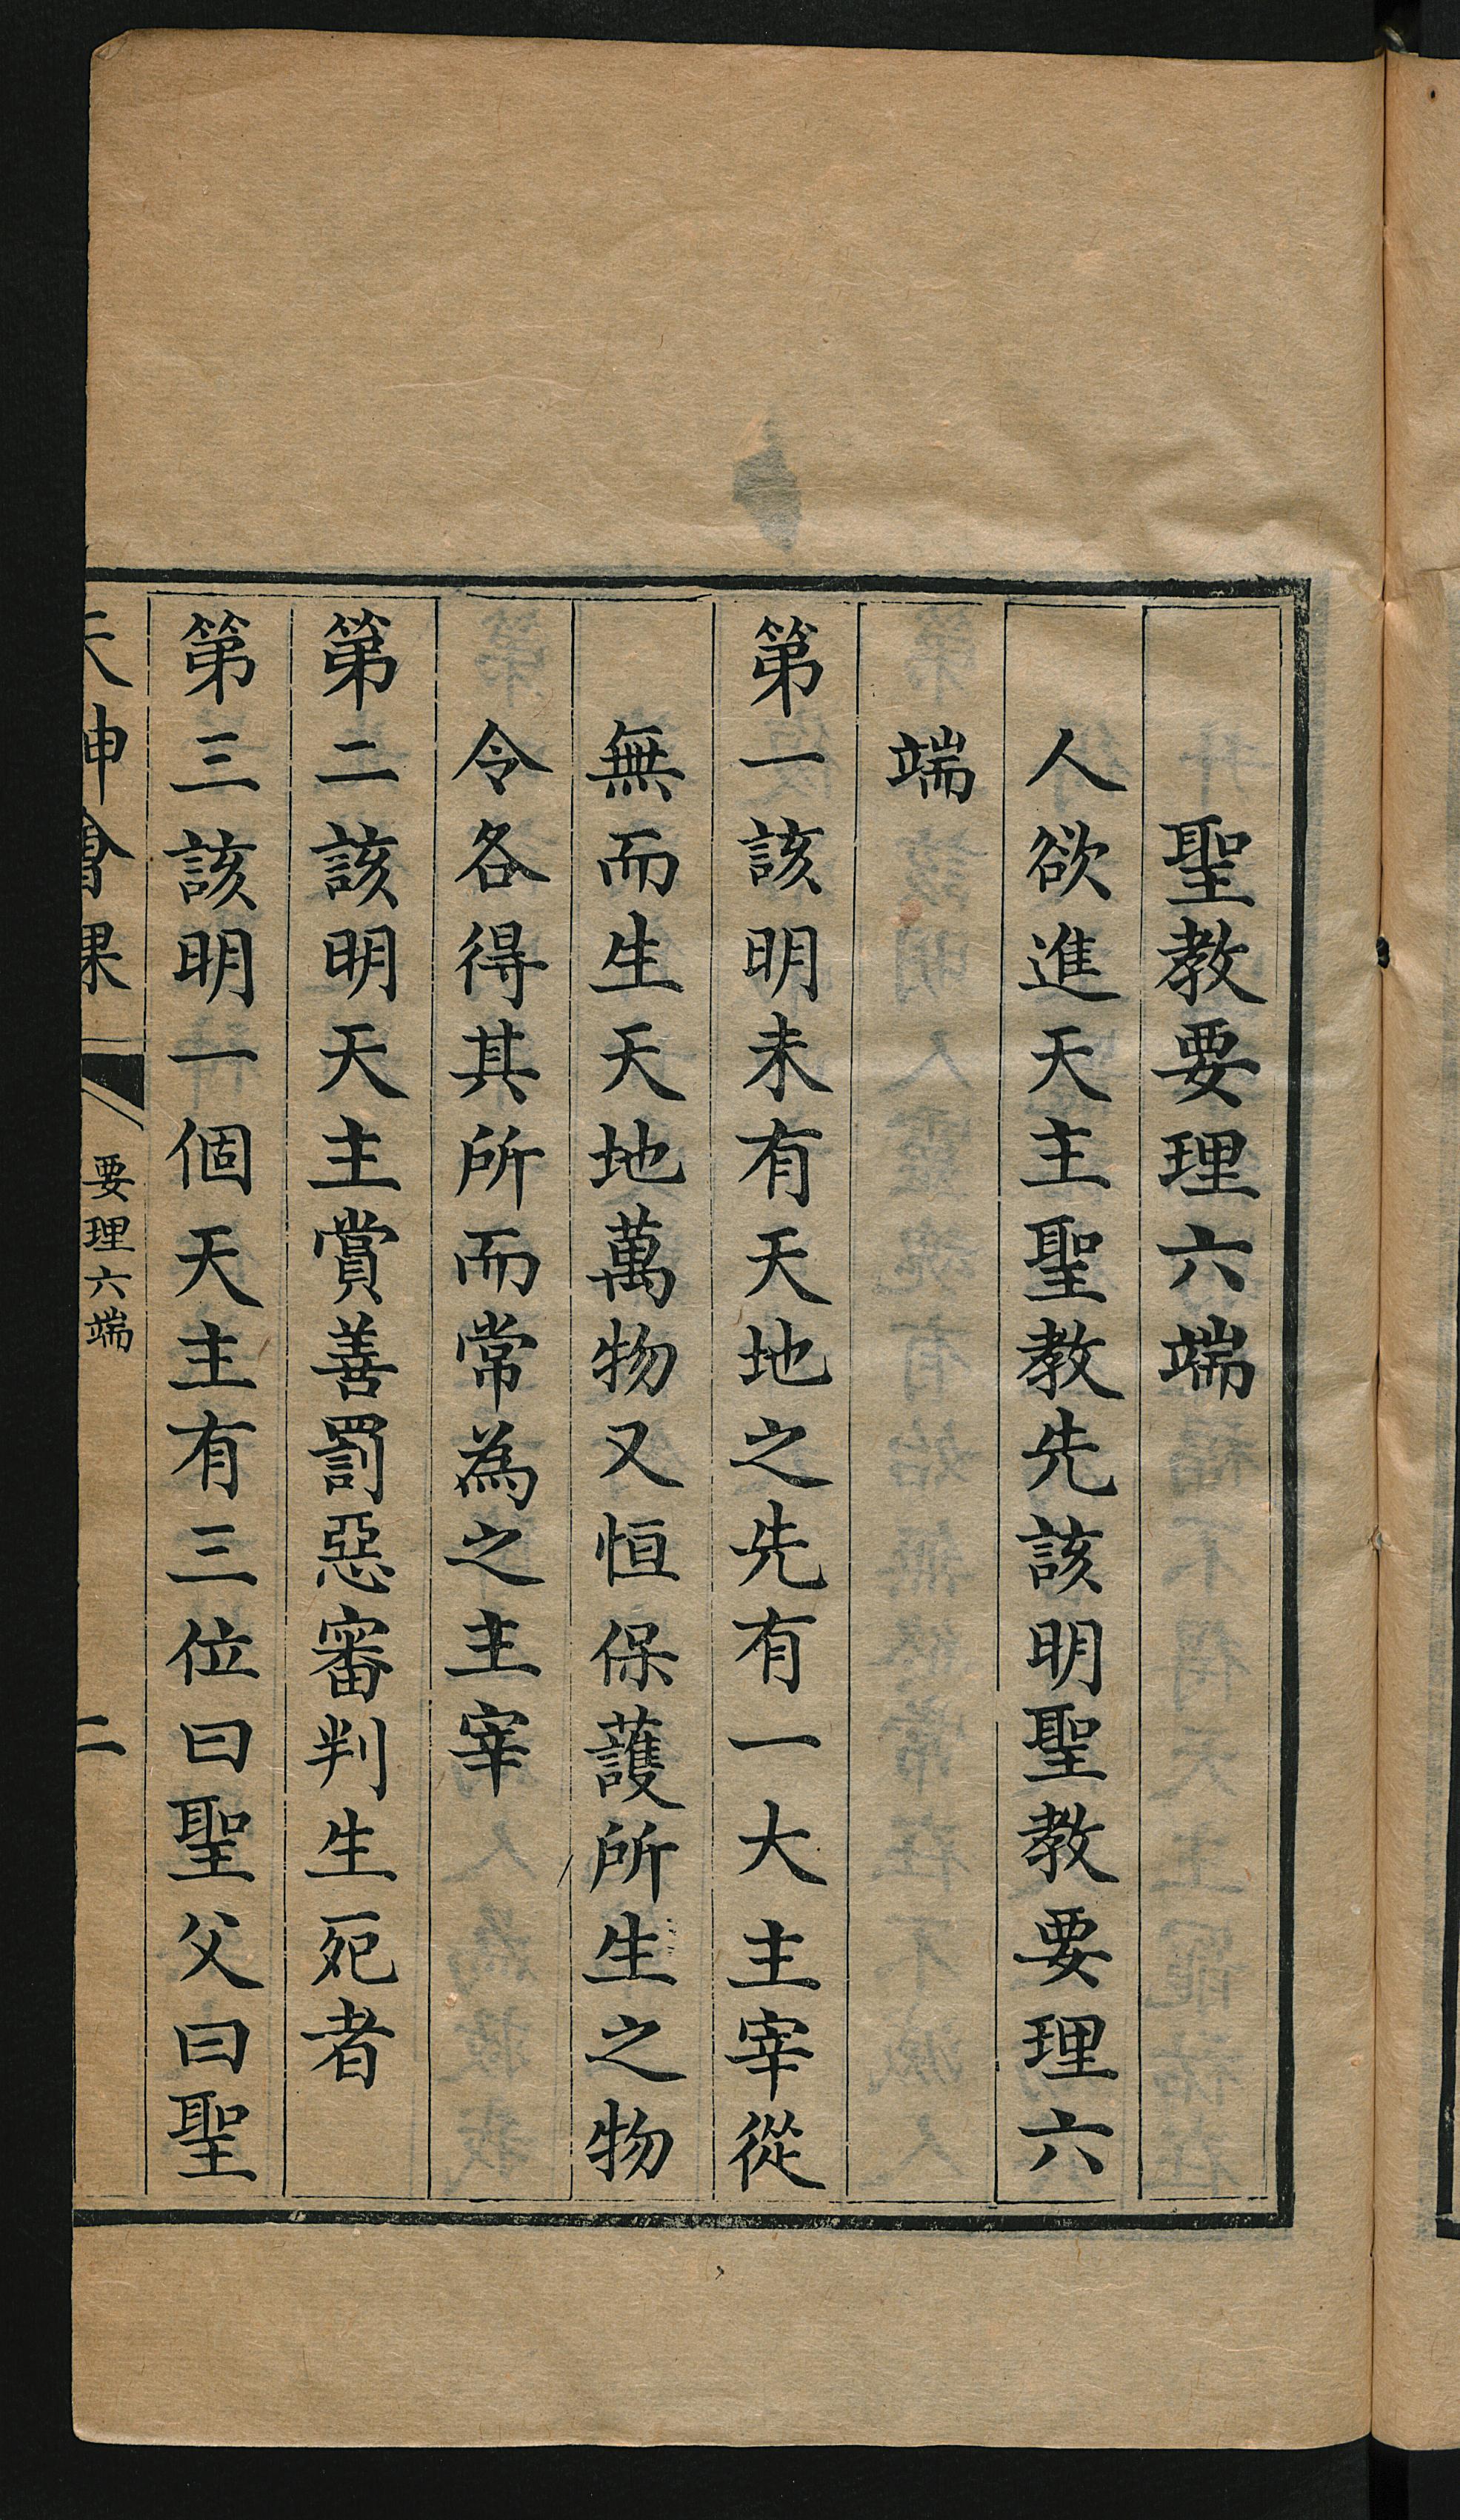 聖教要理六端
人欲進天主聖教先該明聖教要理六
端
第一該明未有天地之先有一大主宰從
無而生天地萬物又恒保護所生之物
令各得其所而常為之主宰
第二該明天主賞善罰惡審判生死者
第三該明一個天主有三位曰聖父曰聖
天神會課
要理六端
二